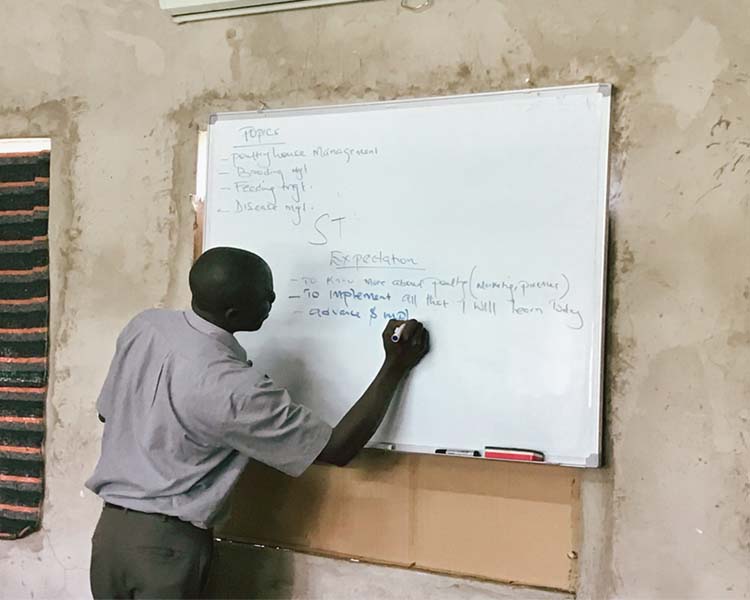 Topics
- Poultry house Management
- Brooding mgt.
- Feeding mgt.
- Disease mgt.
ST
Expectation
- To know more about poultry (
- To implement all that I will learn today
- advance $